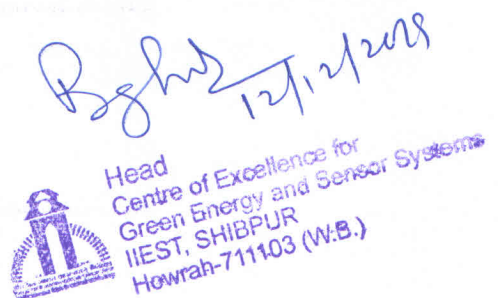 12/12/2025
Head
Centre of Excellence for
Green Energy and Sensor Systems
IIEST, SHIBPUR
Howrah-711103 (W.B.)